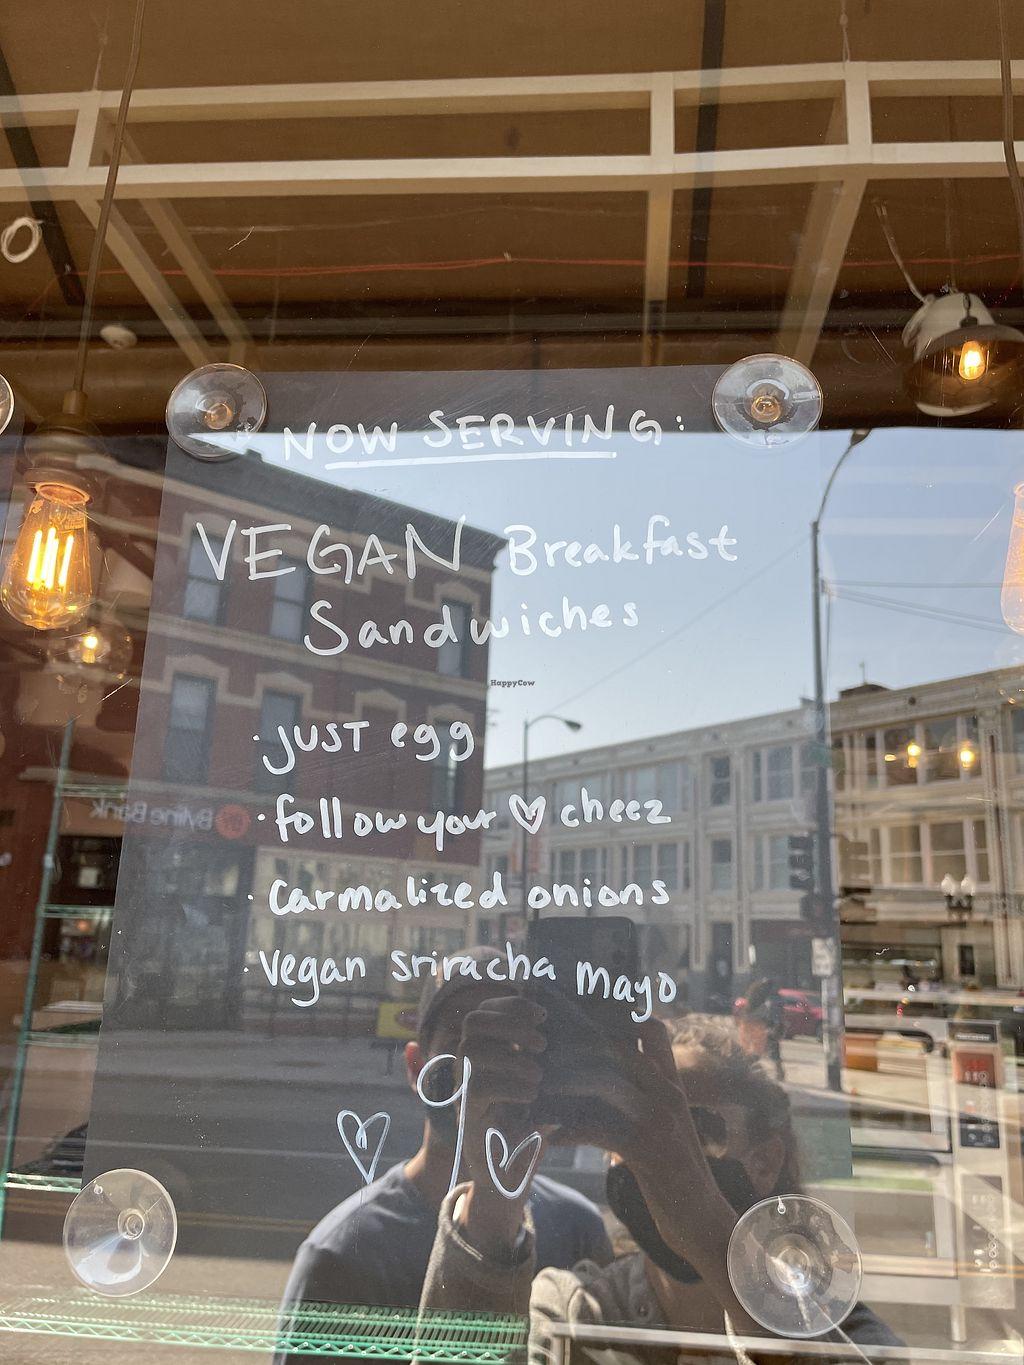 NOW SERVING:
VEGAN Breakfast
Sandwiches
HappyCow
· JUST egg
· follow your ♡ cheez
· Carmalized onions
· Vegan Sriracha Mayo
9
♡ ♡
Byline Bank